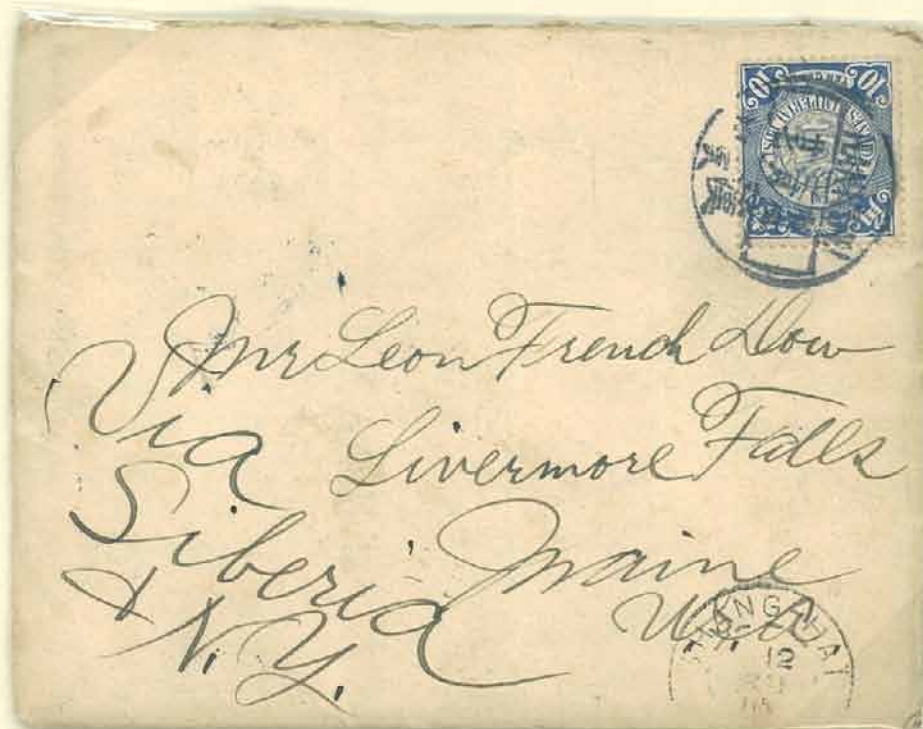 10 10
CHINESE IMPERIAL POST
Mr Leon French Dow
Livermore Falls
Maine
U.S.A.
Via
Siberia
& N.Y.
12